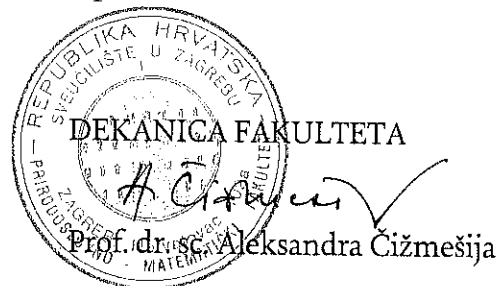 REPUBLIKA HRVATSKA
SVEUČILIŠTE U ZAGREBU
I
PRIRODOSLOVNO - MATEMATIČKI FAKULTET
ZAGREB
DEKANICA FAKULTETA
A Čižmešija
Prof. dr. sc. Aleksandra Čižmešija